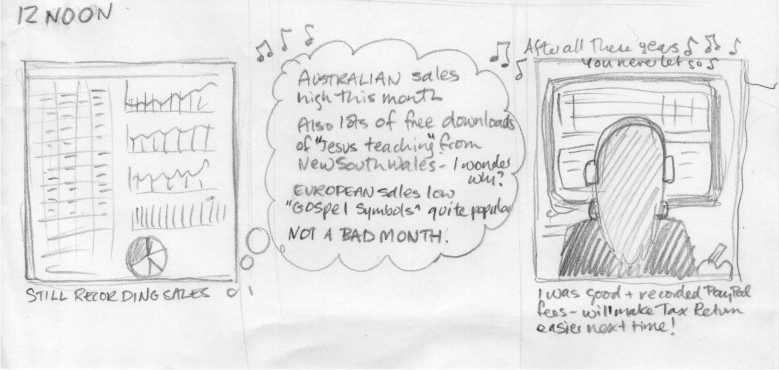 12 NOON
STILL RECORDING SALES
AUSTRALIAN sales
high this month
Also lots of free downloads
of "Jesus teaching" from
New South Wales - I wonder
why?
EUROPEAN sales low
"Gospel Symbols" quite popular
NOT A BAD MONTH.
After all these years
you never let go
I was good + recorded PayPal
fees - will make Tax Return
easier next time!